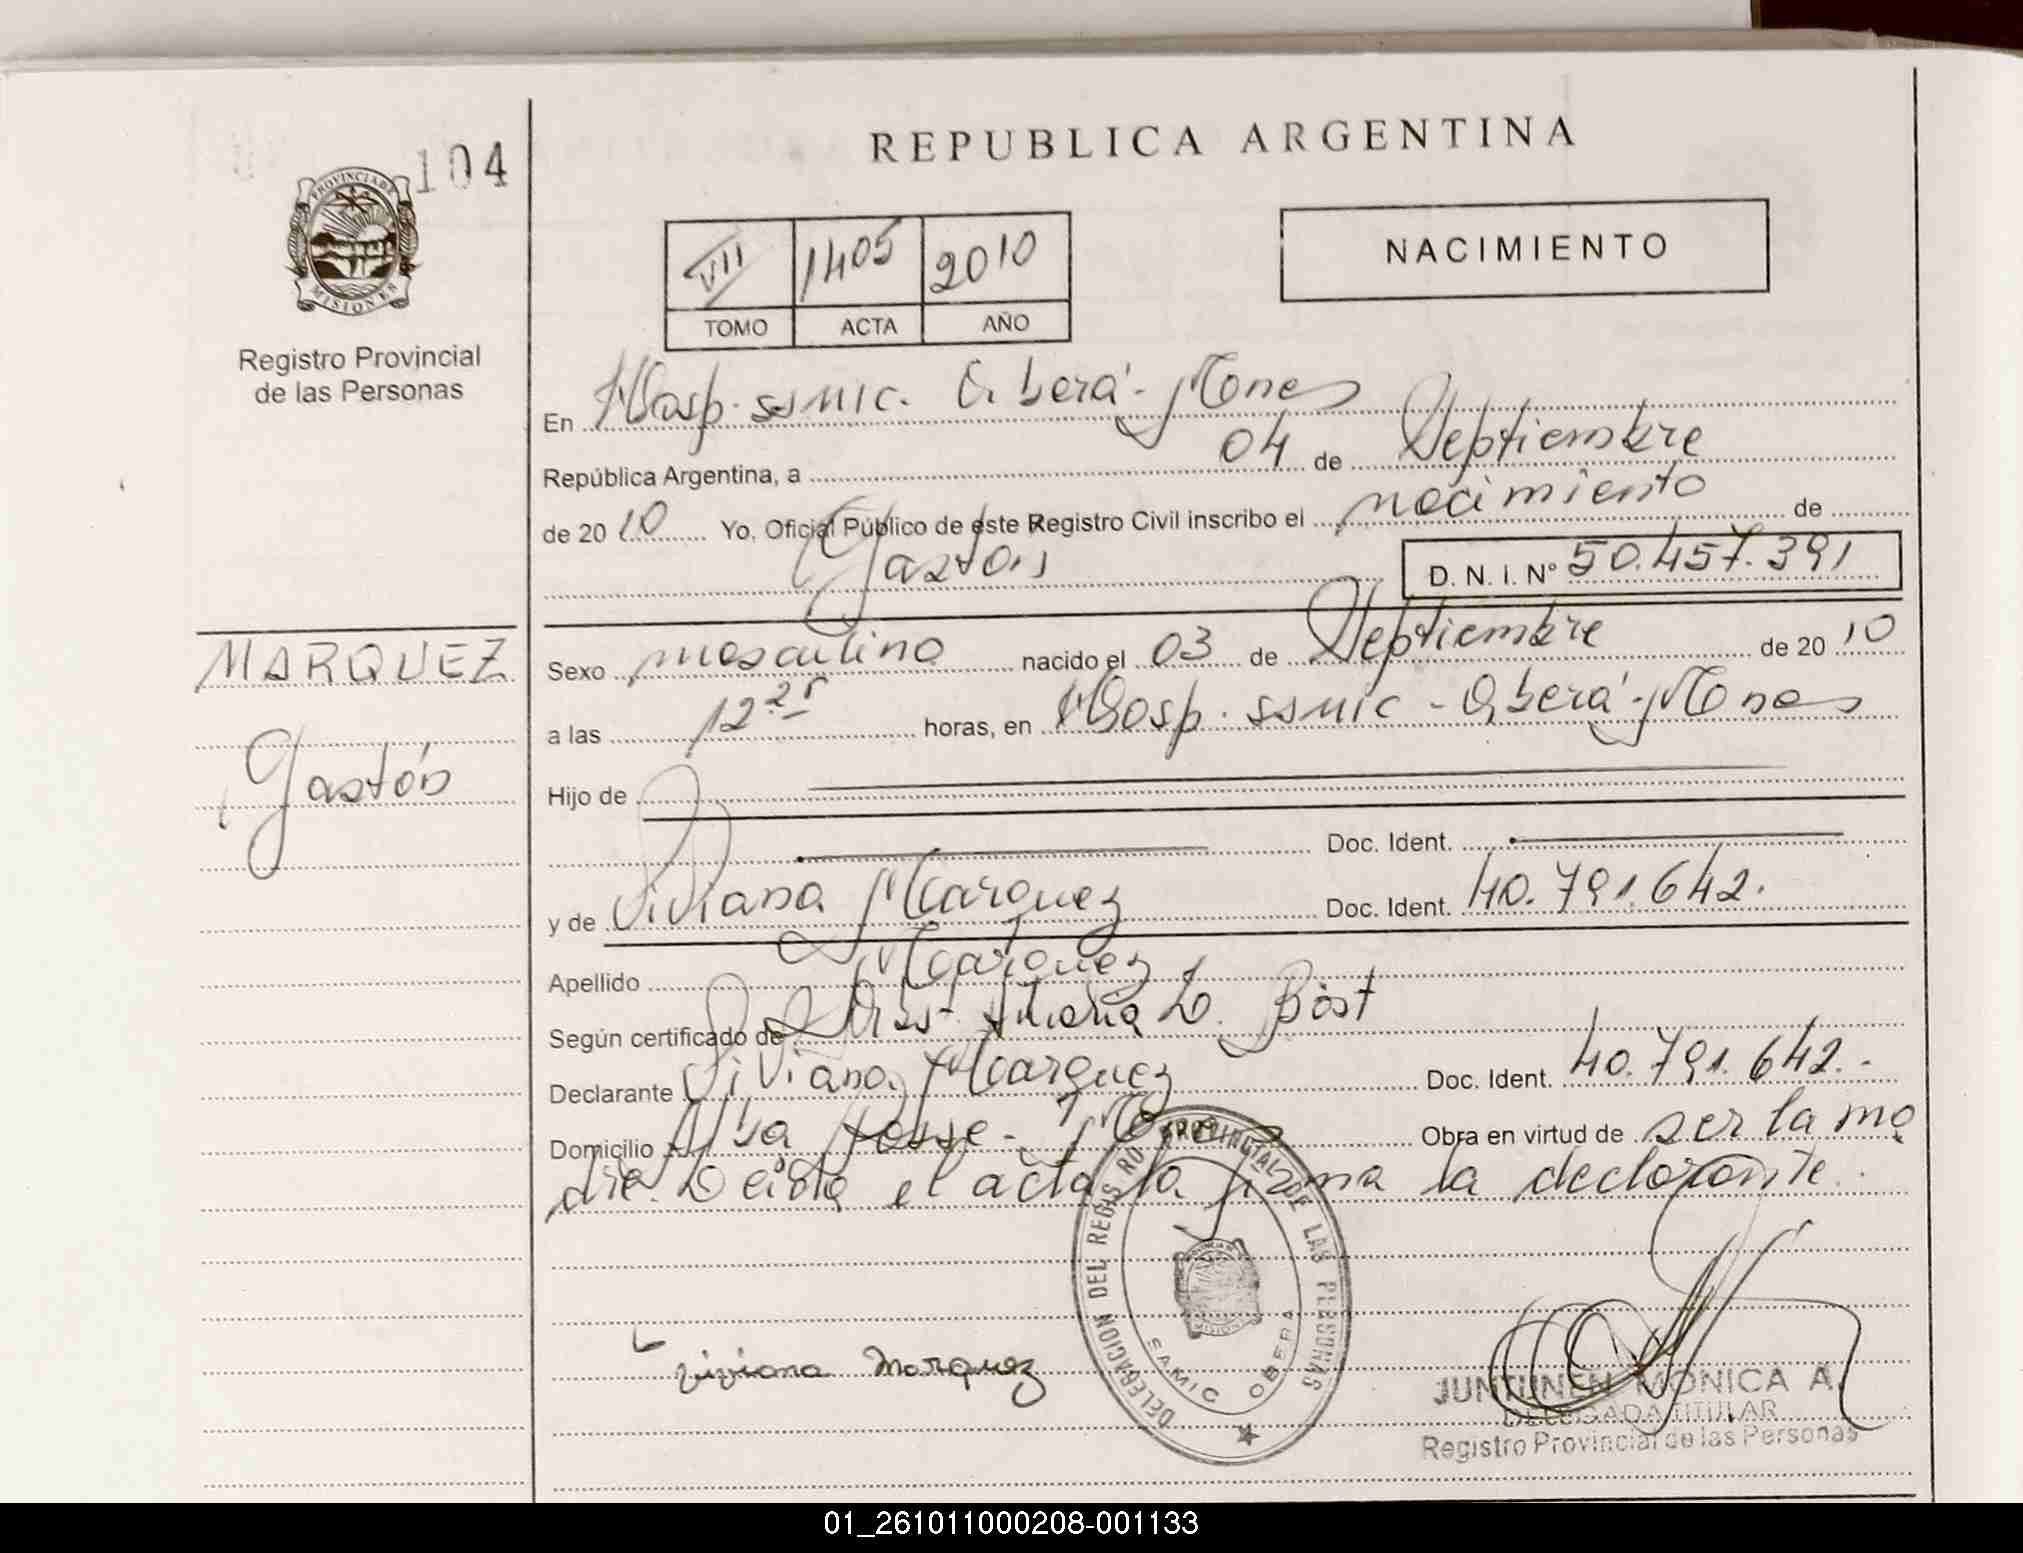 104
REPUBLICA ARGENTINA
PROVINCIA DE MISIONES
Registro Provincial
de las Personas
VII 1405 2010
TOMO ACTA AÑO
NACIMIENTO
En Hosp. SSMIC. Oberá - Mones
República Argentina, a 04 de Septiembre
de 2010 Yo, Oficial Público de este Registro Civil inscribo el nacimiento de
Gastón D. N. I. Nº 50.457.391
MARQUEZ
Gastón
Sexo masculino nacido el 03 de Septiembre de 2010
a las 12 25 horas, en Hosp. SSMIC - Oberá - Mones
Hijo de
Doc. Ident.
y de Viviana Marquez Doc. Ident. 40.791.642.
Apellido Marquez
Según certificado de Obst. Maria D. Bost
Declarante Viviana Marquez Doc. Ident. 40.791.642.-
Domicilio Alba Posse - Mones Obra en virtud de ser la ma
dre. Leída el acta la firma la declarante.
viviana marquez
DELEGACION DEL REGISTRO PROVINCIAL DE LAS PERSONAS
SAMIC OBERA
JUNTUNEN MONICA A.
DELEGADA TITULAR
Registro Provincial de las Personas
01_261011000208-001133